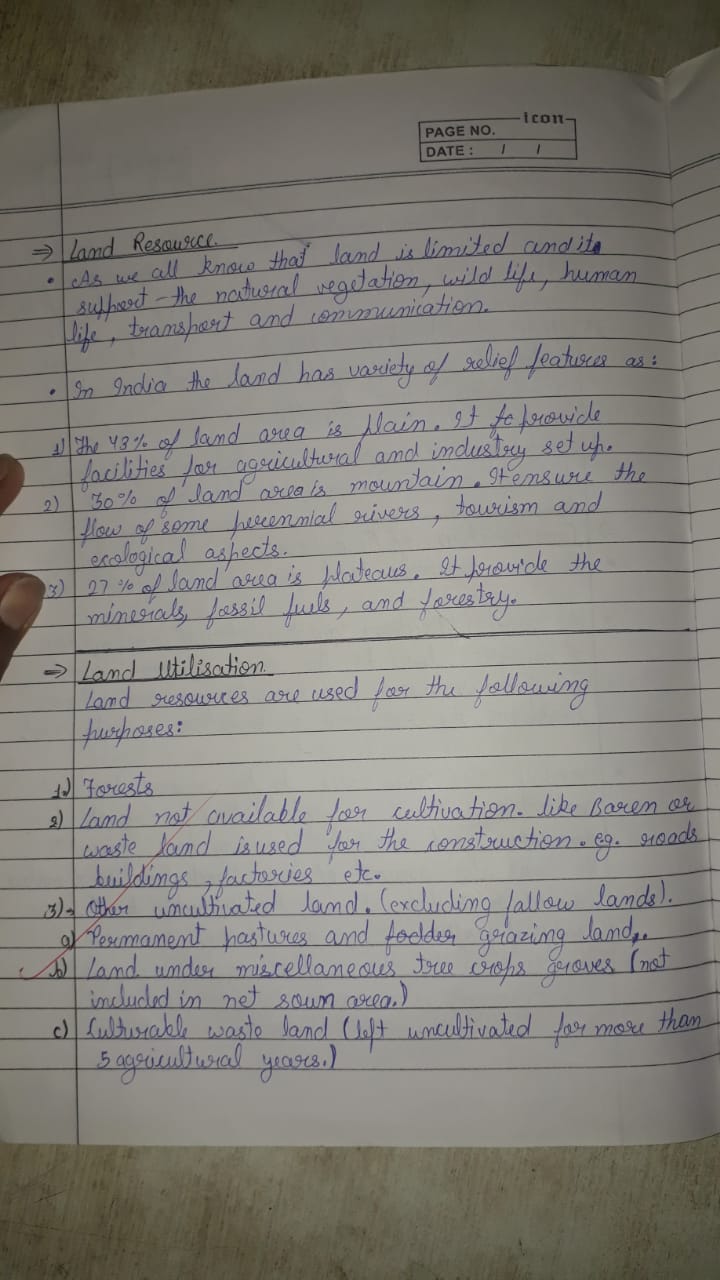 icon
PAGE NO.
DATE : / /
⇒ Land Resource.
• As we all know that land is limited and it
support the natural vegetation, wild life, human
life, transport and communication.
• In India the land has variety of relief features as:
1) The 43% of land area is plain. It provide
facilities for agricultural and industry set up.
2) 30% of land area is mountain. It ensure the
flow of some perennial rivers, tourism and
ecological aspects.
3) 27% of land area is plateaus. It provide the
minerals, fossil fuels, and forestry.
⇒ Land Utilisation
Land resources are used for the following
purposes:
1.) Forests
2) Land not available for cultivation. like Baren or
waste land is used for the construction. eg. roads
buildings, factories etc.
3) Other uncultivated land. (excluding fallow lands).
a) Permanent pastures and fodder grazing land,.
b) Land under miscellaneous tree crops groves (not
included in net soun area.)
c) Culturable waste land (left uncultivated for more than
5 agricultural years.)